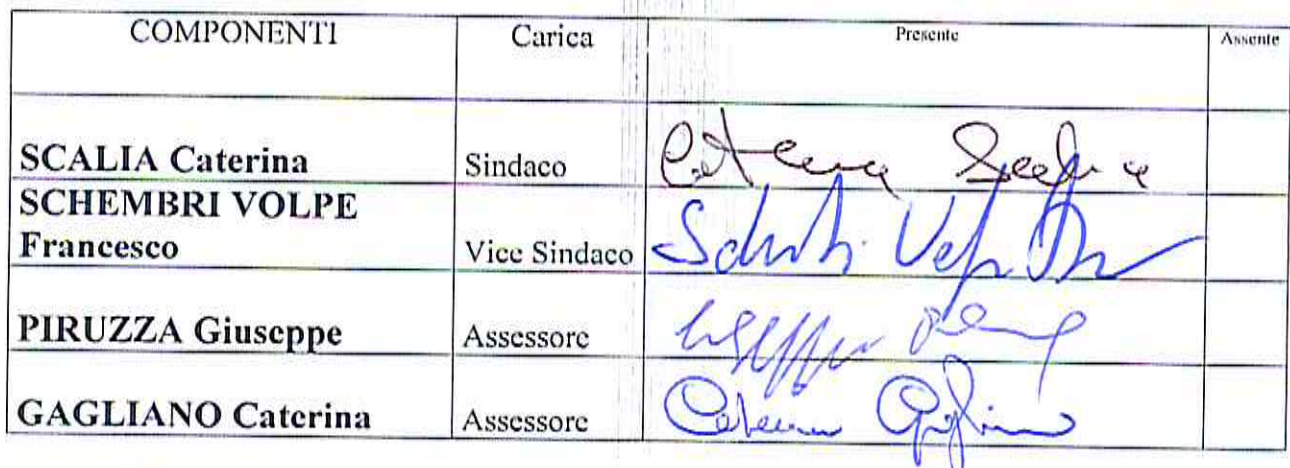 COMPONENTI Carica Presente Assente
SCALIA Caterina Sindaco Caterina Scalia
SCHEMBRI VOLPE
Francesco Vice Sindaco
PIRUZZA Giuseppe Assessore
GAGLIANO Caterina Assessore Caterina Gagliano